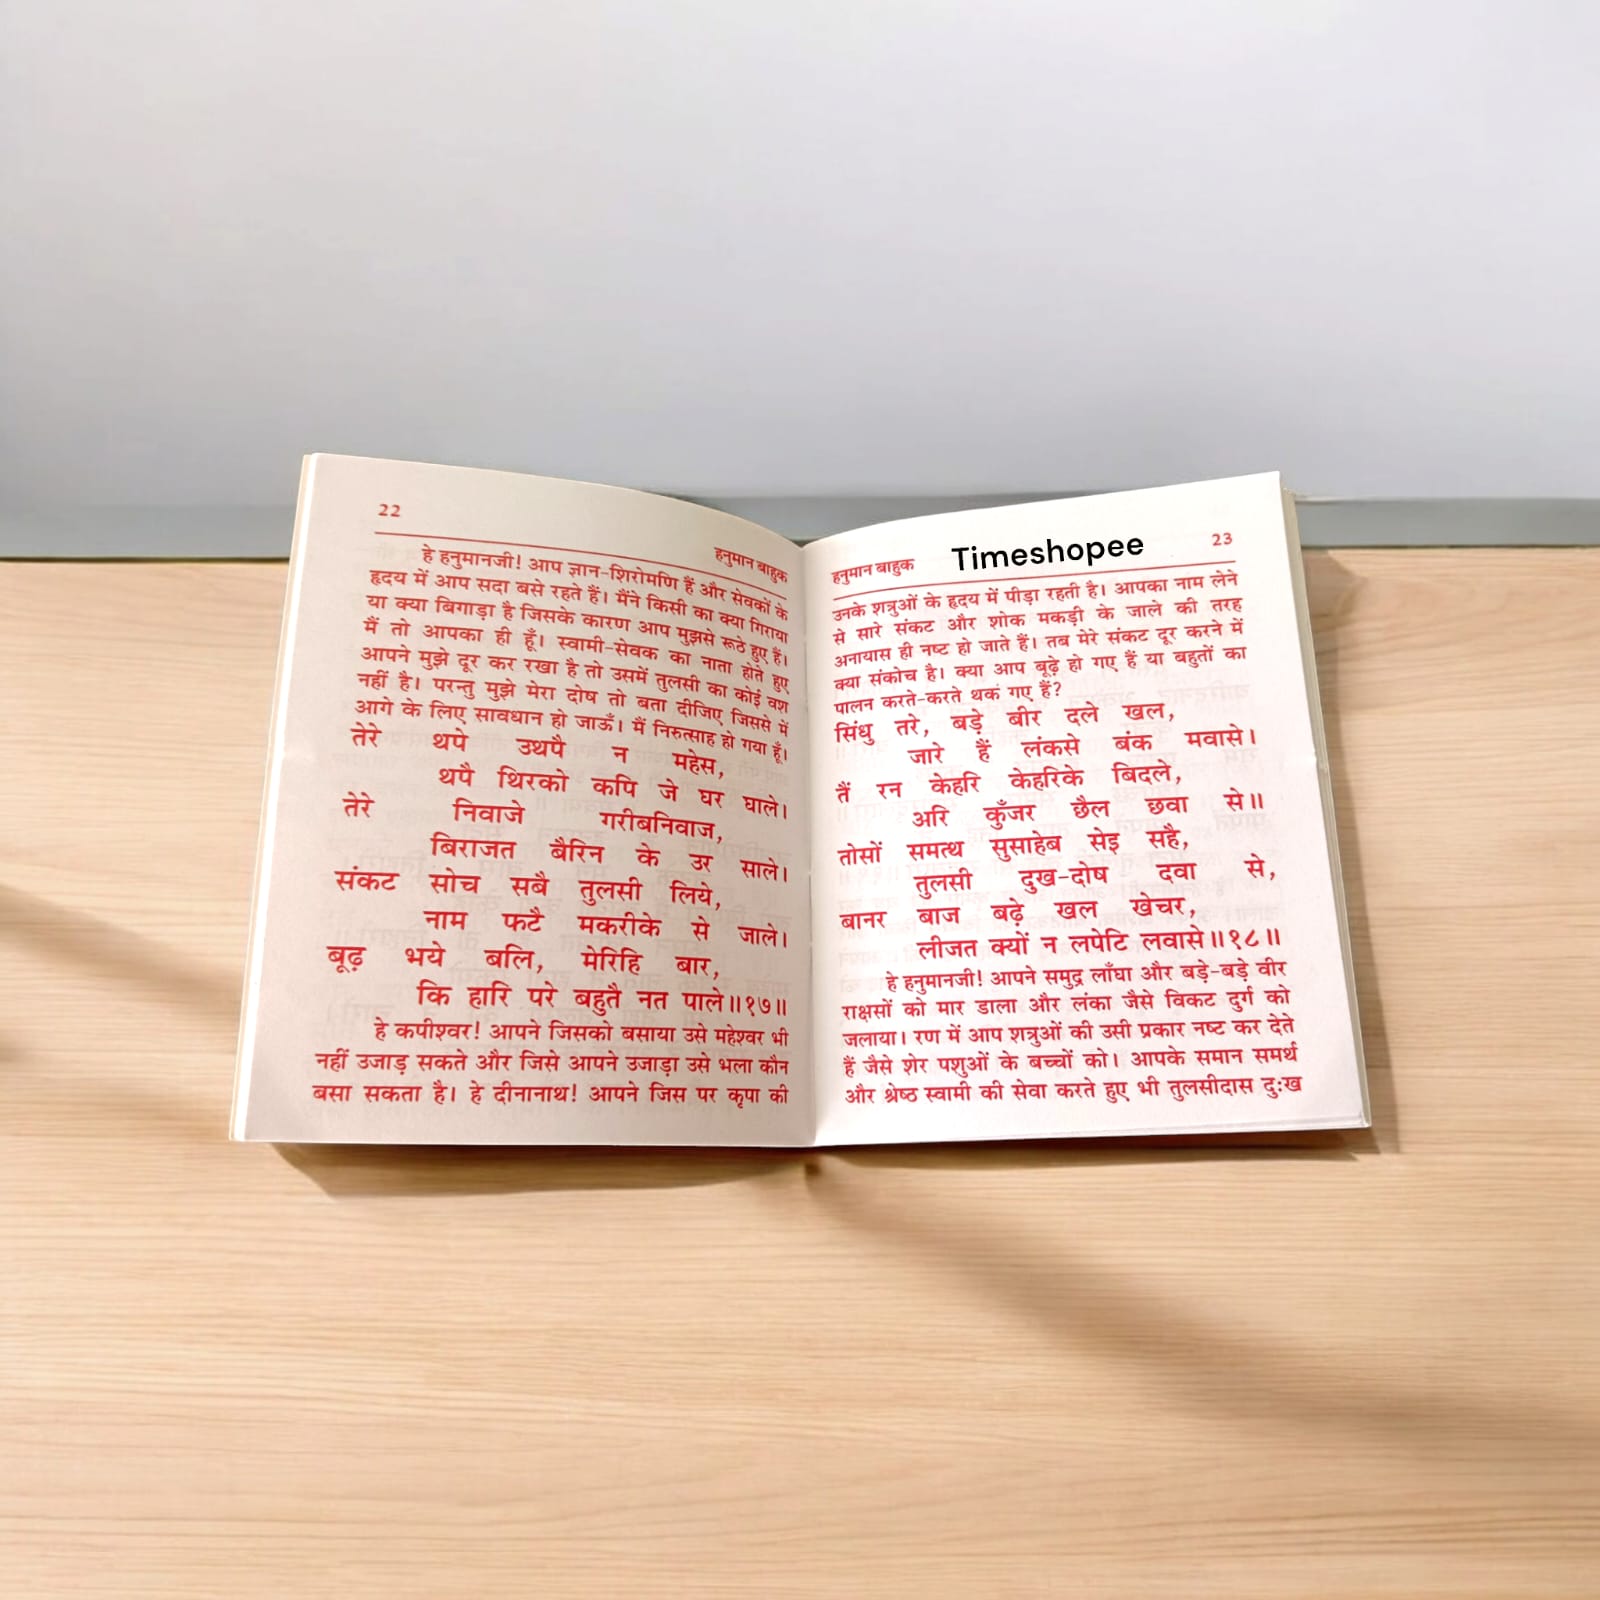 22
हनुमान बाहुक
हे हनुमानजी! आप ज्ञान-शिरोमणि हैं और सेवकों के
हृदय में आप सदा बसे रहते हैं। मैंने किसी का क्या गिराया
या क्या बिगाड़ा है जिसके कारण आप मुझसे रूठे हुए हैं।
मैं तो आपका ही हूँ। स्वामी-सेवक का नाता होते हुए
आपने मुझे दूर कर रखा है तो उसमें तुलसी का कोई वश
नहीं है। परन्तु मुझे मेरा दोष तो बता दीजिए जिससे में
आगे के लिए सावधान हो जाऊँ। मैं निरुत्साह हो गया हूँ।
तेरे थपे उथपै न महेस,
थपै थिरको कपि जे घर घाले।
तेरे निवाजे गरीबनिवाज,
बिराजत बैरिन के उर साले।
संकट सोच सबै तुलसी लिये,
नाम फटै मकरीके से जाले।
बूढ़ भये बलि, मेरिहि बार,
कि हारि परे बहुतै नत पाले॥१७॥
हे कपीश्वर! आपने जिसको बसाया उसे महेश्वर भी
नहीं उजाड़ सकते और जिसे आपने उजाड़ा उसे भला कौन
बसा सकता है। हे दीनानाथ! आपने जिस पर कृपा की
हनुमान बाहुक Timeshopee 23
उनके शत्रुओं के हृदय में पीड़ा रहती है। आपका नाम लेने
से सारे संकट और शोक मकड़ी के जाले की तरह
अनायास ही नष्ट हो जाते हैं। तब मेरे संकट दूर करने में
क्या संकोच है। क्या आप बूढ़े हो गए हैं या बहुतों का
पालन करते-करते थक गए हैं?
सिंधु तरे, बड़े बीर दले खल,
जारे हैं लंकसे बंक मवासे।
तैं रन केहरि केहरिके बिदले,
अरि कुँजर छैल छवा से॥
तोसों समत्थ सुसाहेब सेइ सहै,
तुलसी दुख-दोष दवा से,
बानर बाज बढ़े खल खेचर,
लीजत क्यों न लपेटि लवासे॥१८॥
हे हनुमानजी! आपने समुद्र लाँघा और बड़े-बड़े वीर
राक्षसों को मार डाला और लंका जैसे विकट दुर्ग को
जलाया। रण में आप शत्रुओं की उसी प्रकार नष्ट कर देते
हैं जैसे शेर पशुओं के बच्चों को। आपके समान समर्थ
और श्रेष्ठ स्वामी की सेवा करते हुए भी तुलसीदास दुःख